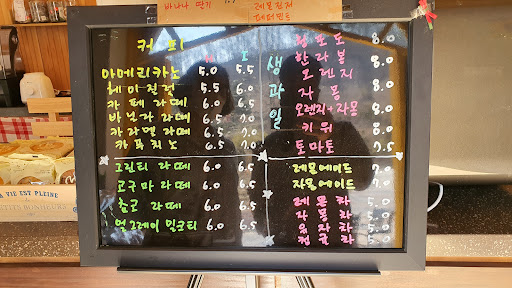 바나나 딸기
레몬진저
페퍼민트
커피
아메리카노 5.0 5.5
헤이즐넛 5.5 6.0
카페라떼 6.0 6.5
바닐라라떼 6.5 7.0
카라멜라떼 6.5 7.0
카푸치노 6.0 6.5
그린티 라떼 6.0 6.5
고구마 라떼 6.0 6.5
초코 라떼 6.0 6.5
얼그레이 밀크티 6.0 6.5
생과일
청포도 8.0
한라봉 8.0
오렌지
자몽
오렌지+자몽 8.0
키위 8.0
토마토 7.5
레몬에이드 7.0
자몽에이드 7.0
레몬차 5.0
자몽차 5.0
유자차 5.0
청귤차 5.0
VIE EST PLEINE
BONHEURS